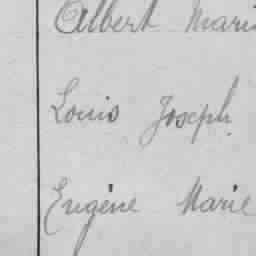 Albert Marie
Louis Joseph
Eugène Marie